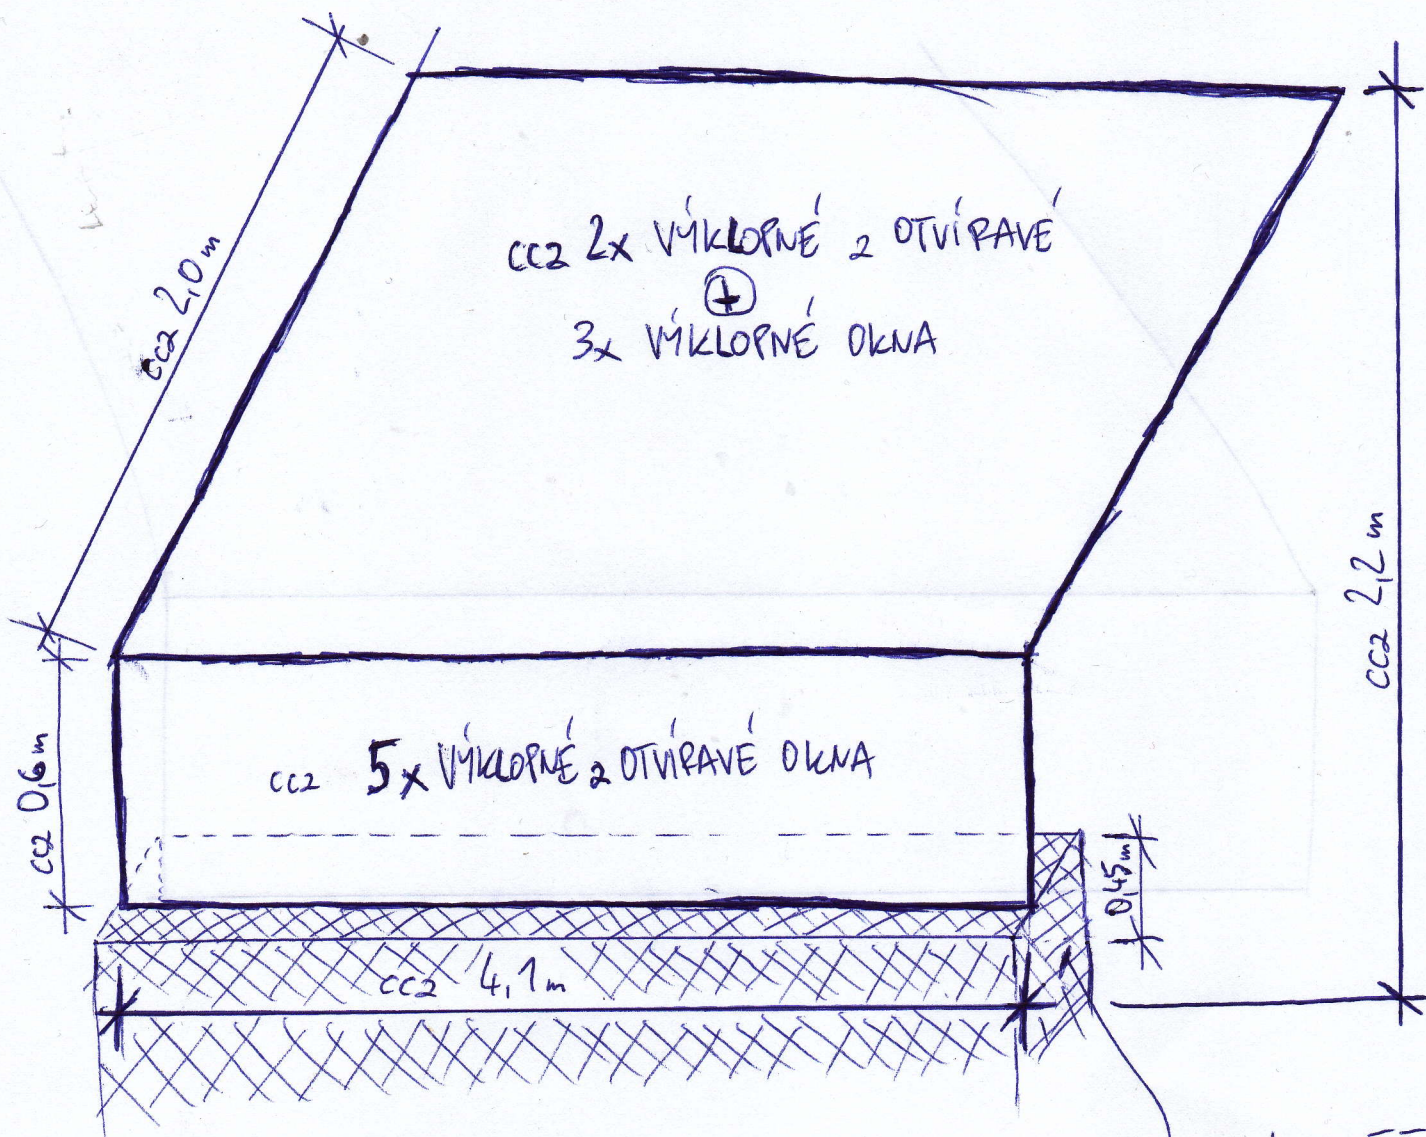 cca 2,0 m
cca 2x VÝKLOPNÉ a OTVÍRAVÉ
+
3x VÝKLOPNÉ OKNA
cca 2,2 m
cca 0,6 m
cca 5x VÝKLOPNÉ a OTVÍRAVÉ OKNA
0,45 m
cca 4,1 m